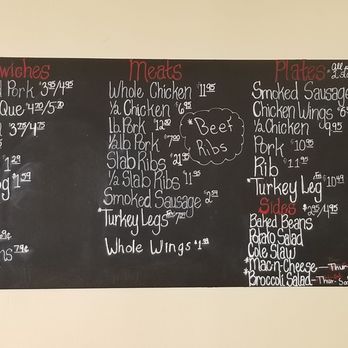 wiches
d Pork $3.95/4.95
Que $4.70/5.70
3.75/4.75
$1.29
g $1
79¢
ns 79¢
Meats
Whole Chicken $11.95
½ Chicken $6.95
lb. Pork $12.50
½lb Pork $7.00
Slab Ribs $21.95
½ Slab Ribs $11.95
Smoked Sausage $2.59
*Turkey Legs
Whole Wings $1.99
*Beef
Ribs
Plates
Smoked Sausage
Chicken Wings
½ Chicken $9.95
Pork $10.95
Rib
*Turkey Leg $10.49
Sides
$2.95/4.95
Baked Beans
Potato Salad
Cole Slaw
*Mac-n-Cheese — Thur
*Broccoli Salad — Thur-S